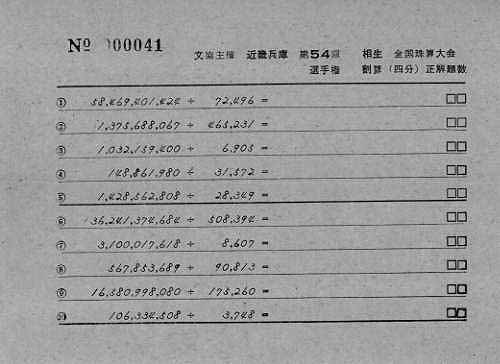 № 000041
近畿兵庫 第54 相生 全国珠算大会
選手権 割算(四分)正解題数
① 58,469,401,424 ÷ 72,496 = □□
② 1,375,688,067 ÷ 465,231 = □□
③ 1,032,159,400 ÷ 6,905 = □□
④ 148,861,980 ÷ 31,572 = □□
⑤ 1,428,562,808 ÷ 28,349 = □□
⑥ 36,241,374,684 ÷ 508,394 = □□
⑦ 3,100,017,618 ÷ 8,607 = □□
⑧ 567,853,689 ÷ 90,813 = □□
⑨ 16,580,998,080 ÷ 175,260 = □□
⑩ 106,334,508 ÷ 3,748 = □□